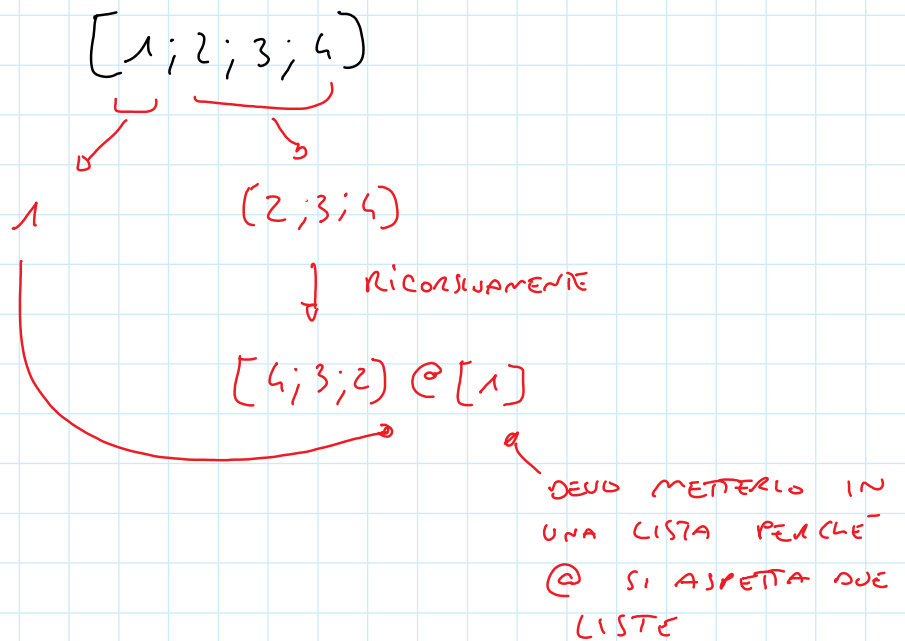 [1;2;3;4)
1
(2;3;4)
RICORSIVAMENTE
[4;3;2) @ [1]
DEVO METTERLO IN
UNA LISTA PERCHÉ
@ SI ASPETTA DUE
LISTE